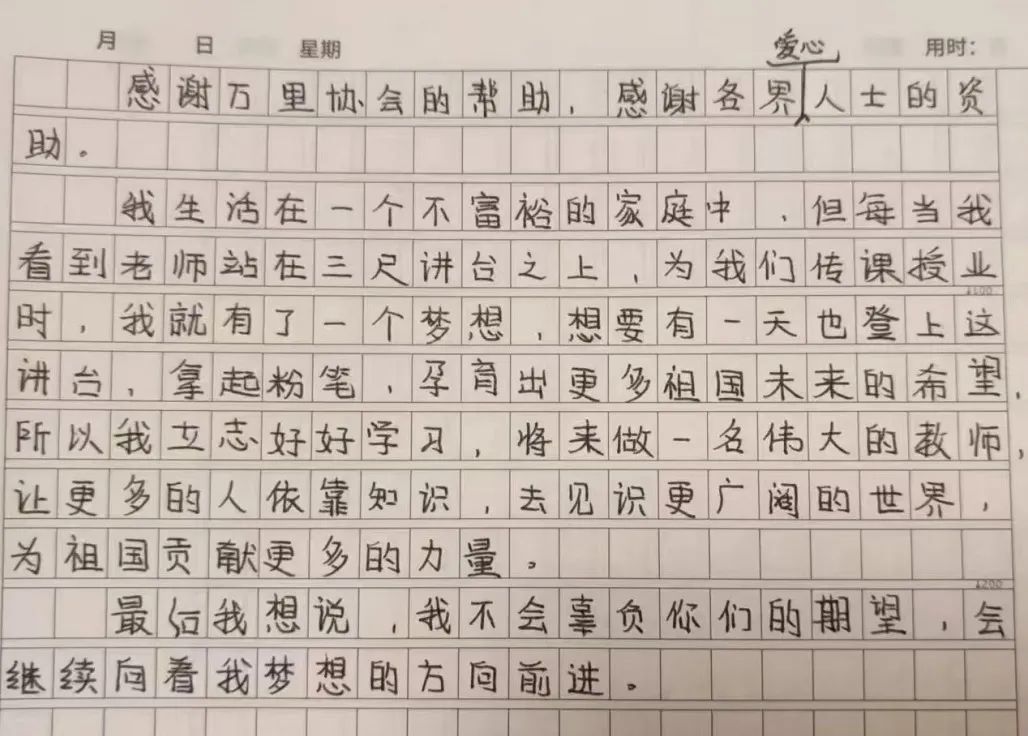 月 日 星期 用时：
爱心
感谢万里协会的帮助，感谢各界人士的资
助。
我生活在一个不富裕的家庭中，但每当我
看到老师站在三尺讲台之上，为我们传课授业
1100
时，我就有了一个梦想，想要有一天也登上这
讲台，拿起粉笔，孕育出更多祖国未来的希望，
所以我立志好好学习，将来做一名伟大的教师，
让更多的人依靠知识，去见识更广阔的世界，
为祖国贡献更多的力量。
1200
最后我想说，我不会辜负你们的期望，会
继续向着我梦想的方向前进。